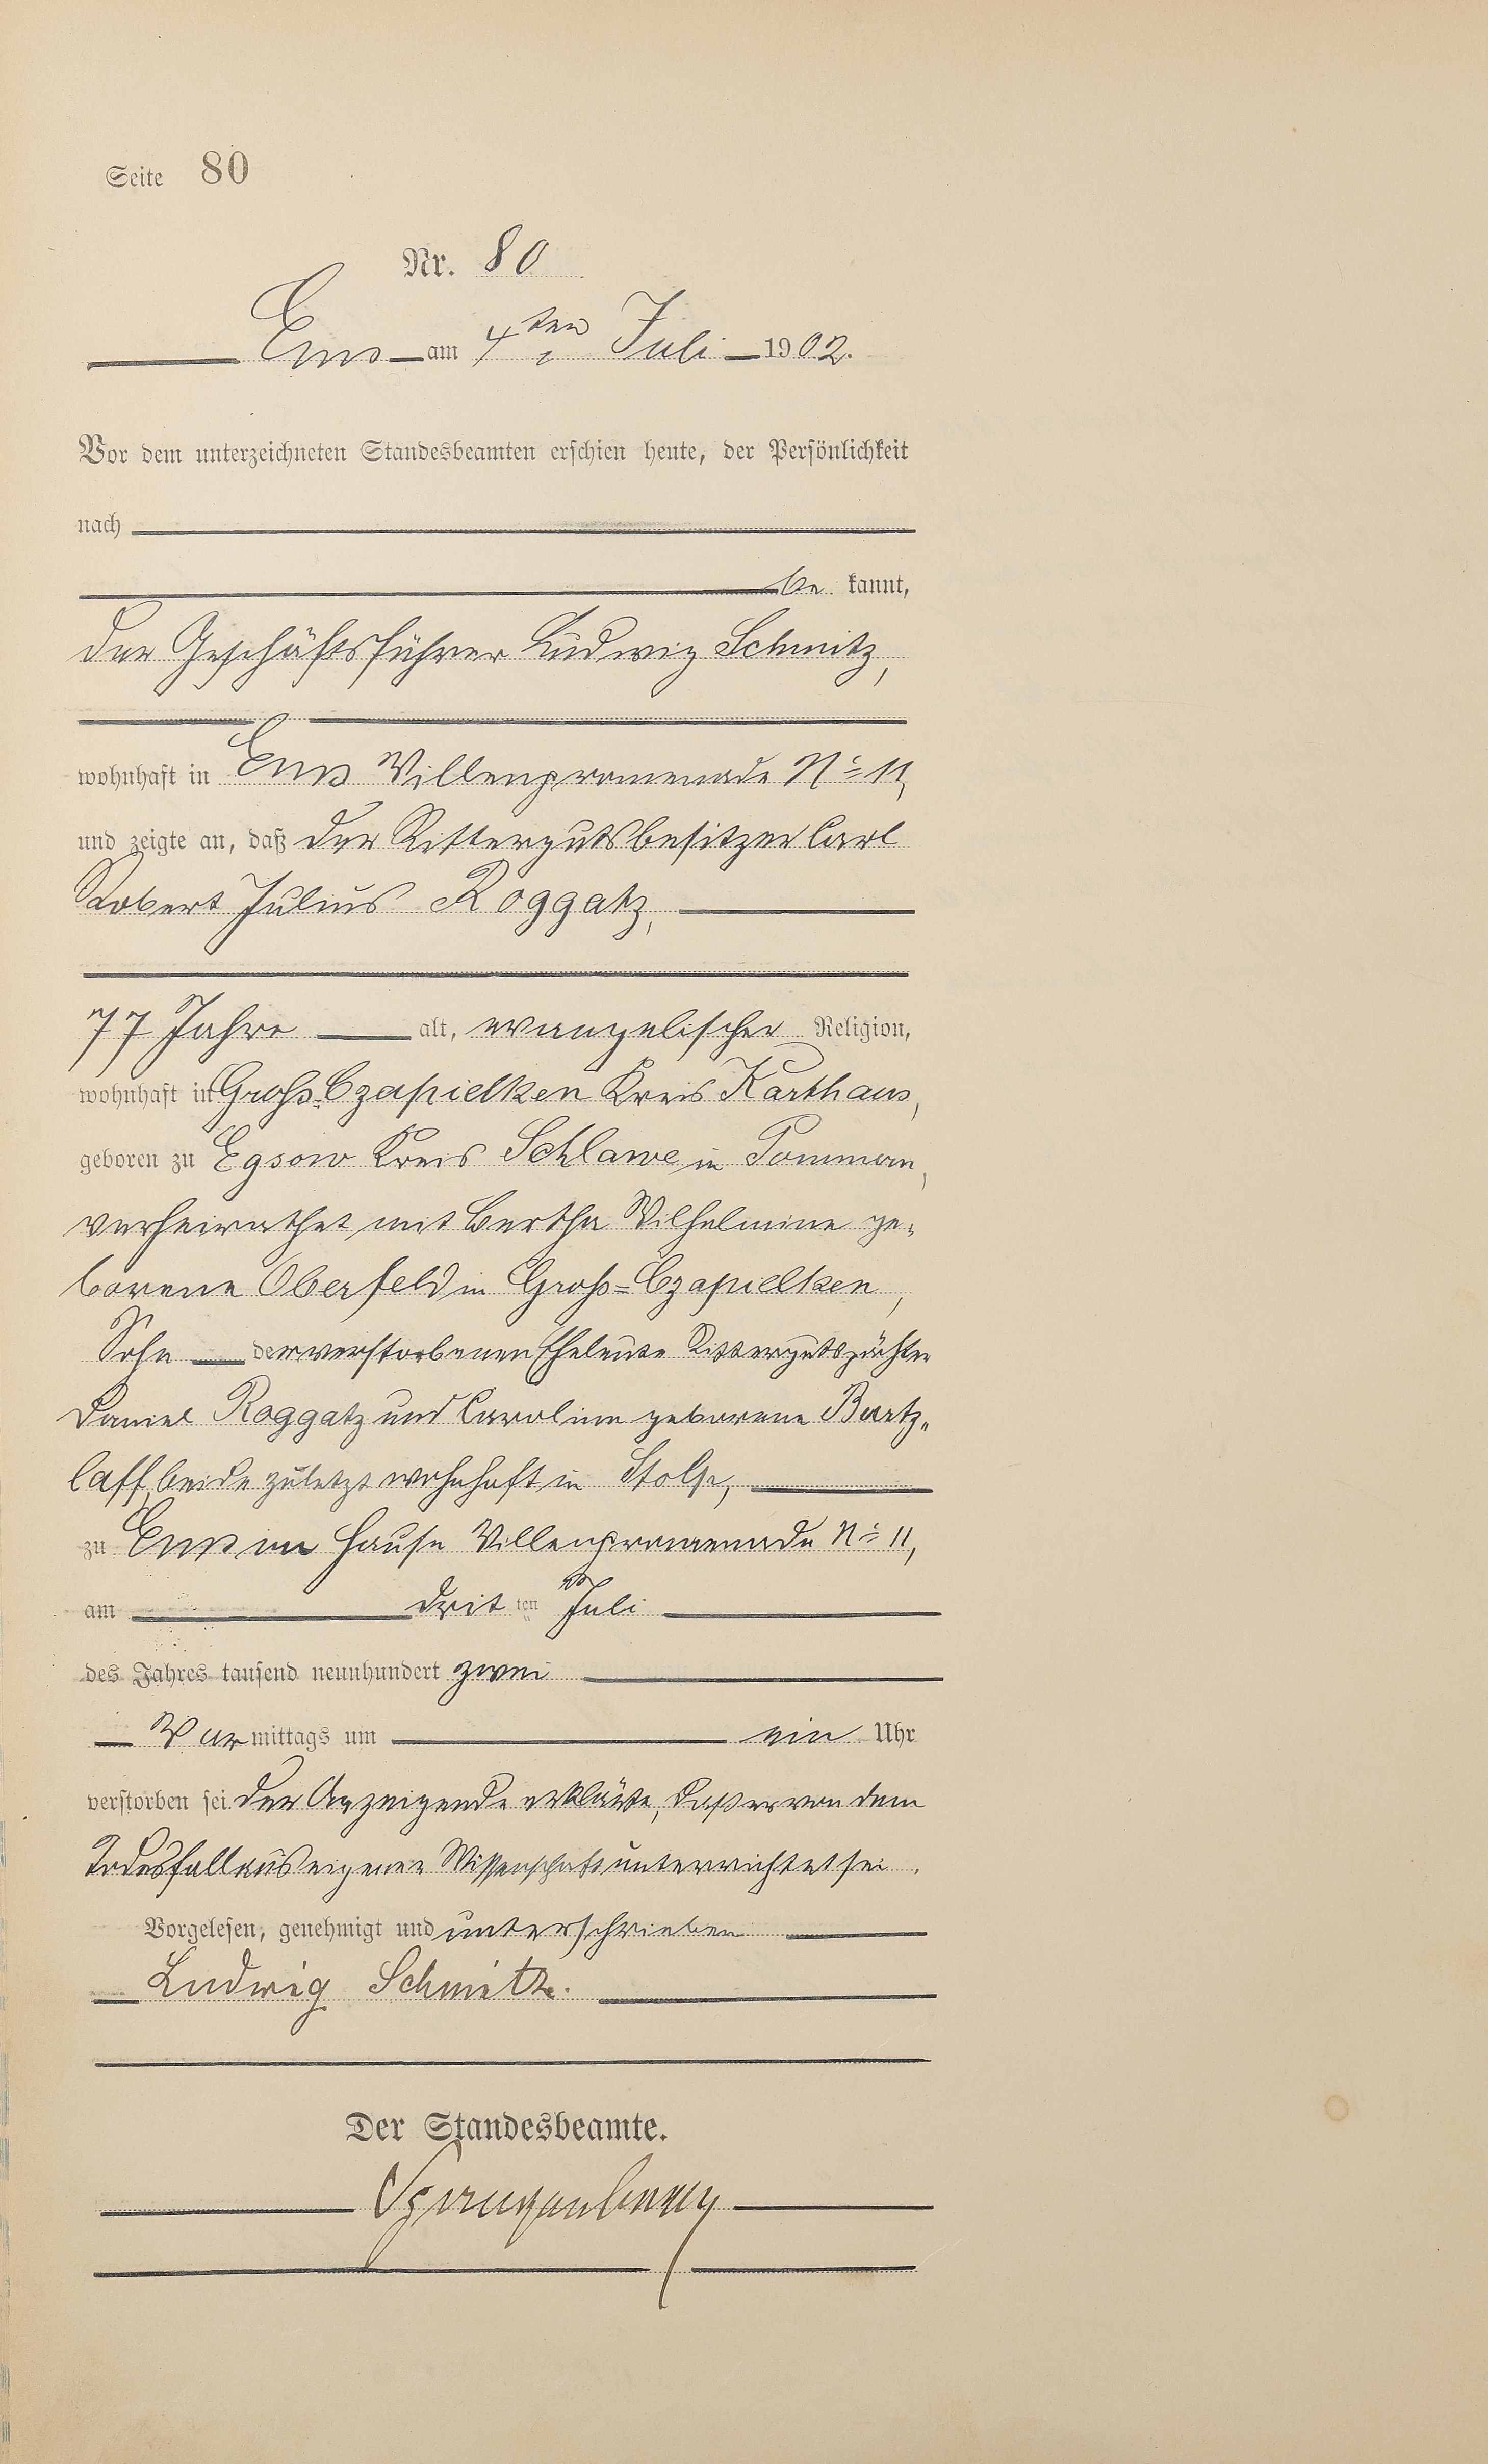 Seite 80
Nr. 80
Ems am 4ten Juli 1902.
Vor dem unterzeichneten Standesbeamten erschien heute, der Persönlichkeit
nach
be kannt,
der Geschäftsführer Ludwig Schmitz,
wohnhaft in Ems Villenpromenade No 11,
und zeigte an, daß der Rittergutsbesitzer Carl
Robert Julius Roggatz,
77 Jahre alt, evangelischer Religion,
wohnhaft in Groß-Czapielken Kreis Karthaus,
geboren zu Egsow Kreis Schlawe in Pommern,
verheirathet mit Bertha Wilhelmine ge-
borene Oberfeld in Groß=Czapielken,
Sohn der verstorbenen Eheleute Rittergutspächter
Daniel Roggatz und Caroline geborene Bartz-
laff, beide zuletzt wohnhaft in Stolp,
zu Ems im Hause Villenpromenade No 11,
am drit ten Juli
des Jahres tausend neunhundert zwei
Vor mittags um ein Uhr
verstorben sei. Der Anzeigende erklärte, daß er von dem
Todesfall aus eigener Wissenschaft unterrichtet sei.
Vorgelesen, genehmigt und unterschrieben
Ludwig Schmitz.
Der Standesbeamte.